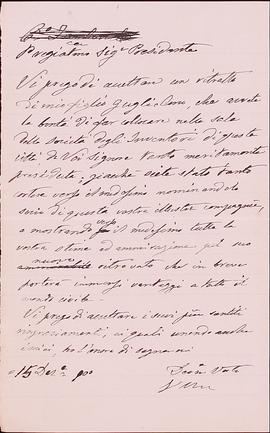 Pregiatmo Sigr Presidente
Vi prego di accettare un ritratto
di mio figlio Guglielmo, che avrete
la bontà di far collocare nella sala
della Società degli Inventori di questa
città, da Voi Signore tanto meritamente
presieduta, giacchè siete stato tanto
cortese verso il medesimo nominandolo
socio di questa vostra illustre compagnia,
e mostrando verso il medesimo tutta la
vostra stima ed ammirazione pel suo
nuovo
ritrovato che in breve
porterà immensi vantaggi a tutto il
mondo civile.
Vi prego di accettare i suoi più sentiti
ringraziamenti, ai quali unendo anche
i miei, ho l'onore di segnarmi
15